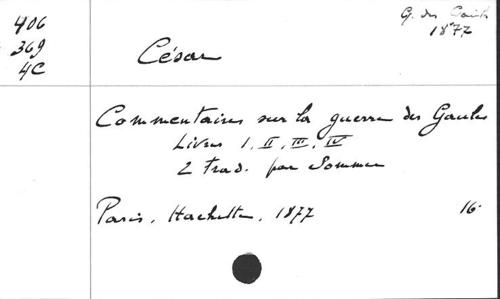 406
369
4C
G. des Gaules
1877
César
Commentaires sur la guerre des Gaules
Livres I, II, III, IV
2 Trad. par Sommer
Paris, Hachette, 1877 16